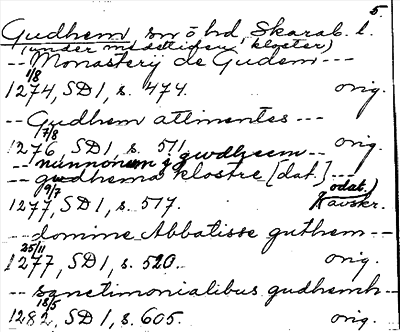 5
Gudhem sn o hd, Skarab. l.
(under medeltiden, kloster)
-- Monasterij de Gudem ---
1/8
1274, SD1, s. 474. orig.
-- Gudhem attinentes ---
7/8
1276, SD1, s. 511. orig.
-- nunnonum j gwdheem --
-- gudhema klostre [dat.] ---
9/7 odat.)
1277, SD1, s. 517. Kavskr.
-- domine Abbatisse guthem --
25/11
1277, SD1, s. 520. orig.
-- sanctimonialibus gudhemh --
18/5
1282, SD1, s. 605. orig.